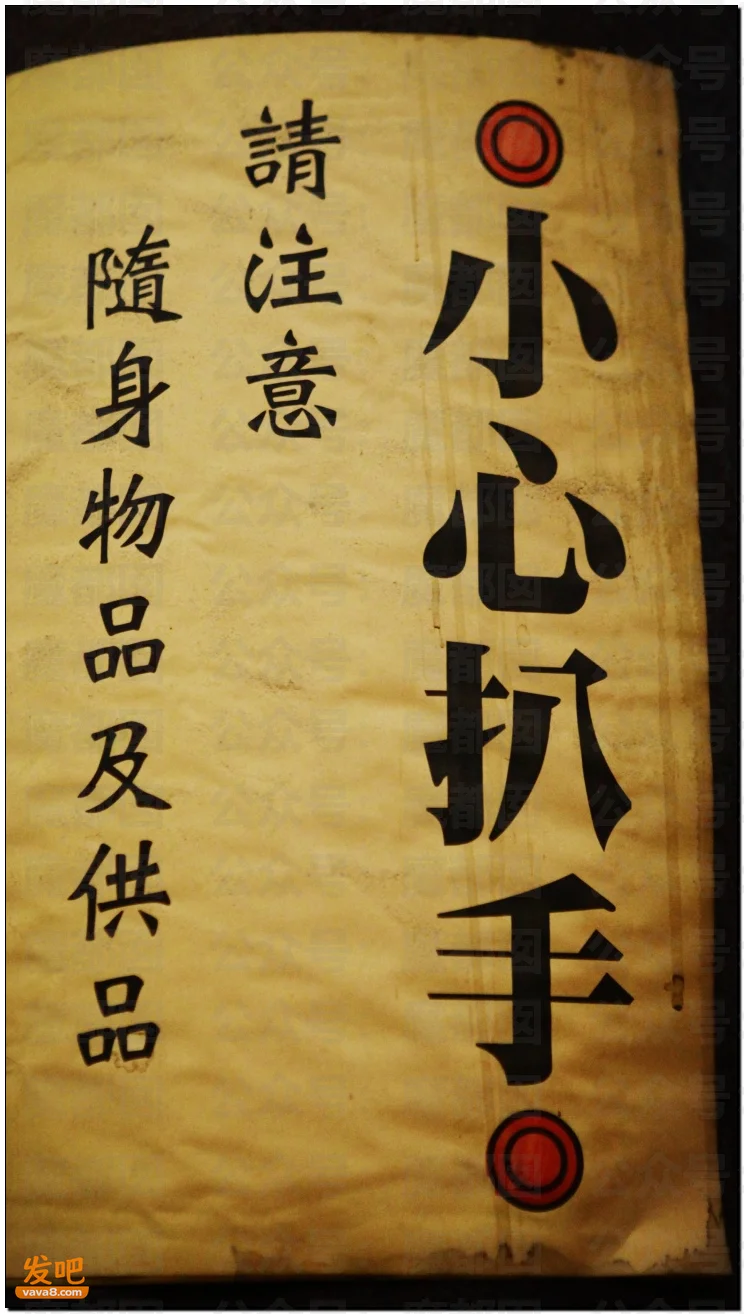 小心扒手
請注意
隨身物品及供品
发吧
vava8.com